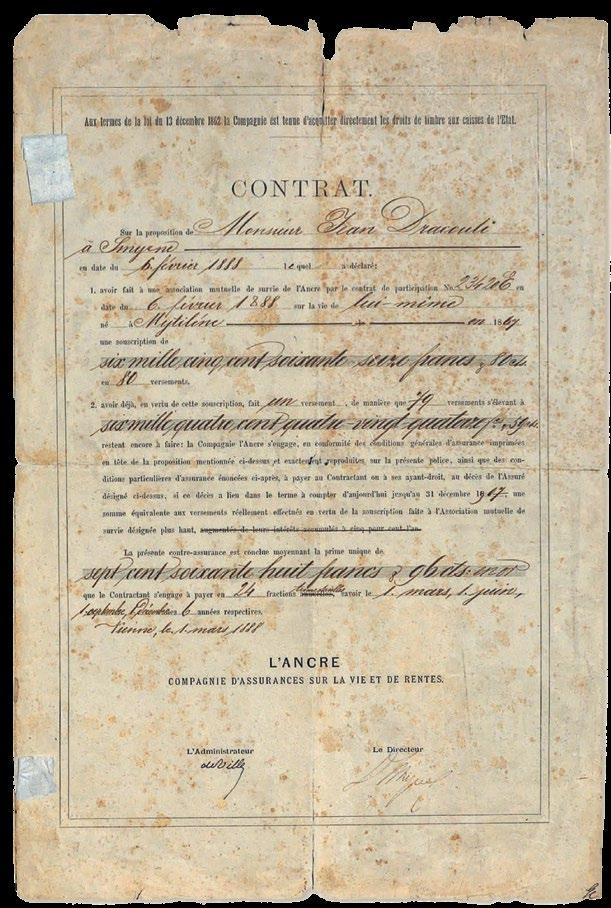 Aux termes de la loi du 13 décembre 1862 la Compagnie est tenue d'acquitter directement les droits de timbre aux caisses de l'Etat.
CONTRAT.
Sur la proposition de Monsieur Jean Dracouli
à Smyrne
en date du 6 février 1888 lequel a déclaré:
1. avoir fait à une association mutuelle de survie de l'Ancre par le contrat de participation No. 23420E en
date du 6 février 1888 sur la vie de lui-même
né à Mytilène en 1867
une souscription de
six mille cinq cent soixante seize francs, 80 cts.
en 80 versements.
2. avoir déjà, en vertu de cette souscription, fait un versement, de manière que 79 versements s'élevant à
six mille quatre cent quatre-vingt quatorze fcs, 59 cts.
restent encore à faire: la Compagnie l'Ancre s'engage, en conformité des conditions générales d'assurance imprimées
en tête de la proposition mentionnée ci-dessus et exactement reproduites, sur la présente police, ainsi que des con-
ditions particulières d'assurance énoncées ci-après, à payer au Contractant ou à ses ayant-droit, au décès de l'Assuré
désigné ci-dessus, si ce décès a lieu dans le terme à compter d'aujourd'hui jusqu'au 31 décembre 1907. une
somme équivalente aux versements réellement effectués en vertu de la souscription faite à l'Association mutuelle de
survie désignée plus haut, augmentés de leurs intérêts accumulés à cinq pour cent l'an.
La présente contre-assurance est conclue moyennant la prime unique de
sept cent soixante huit francs & 96 cts. en or
que le Contractant s'engage à payer en 24 fractions trimestrielles annuelles, savoir le 1. mars, 1. juin,
1. septembre, 1. décembre des 6 années respectives.
Vienne, le 1. mars 1888
L'ANCRE
COMPAGNIE D'ASSURANCES SUR LA VIE ET DE RENTES.
L'Administrateur Le Directeur
de Ville